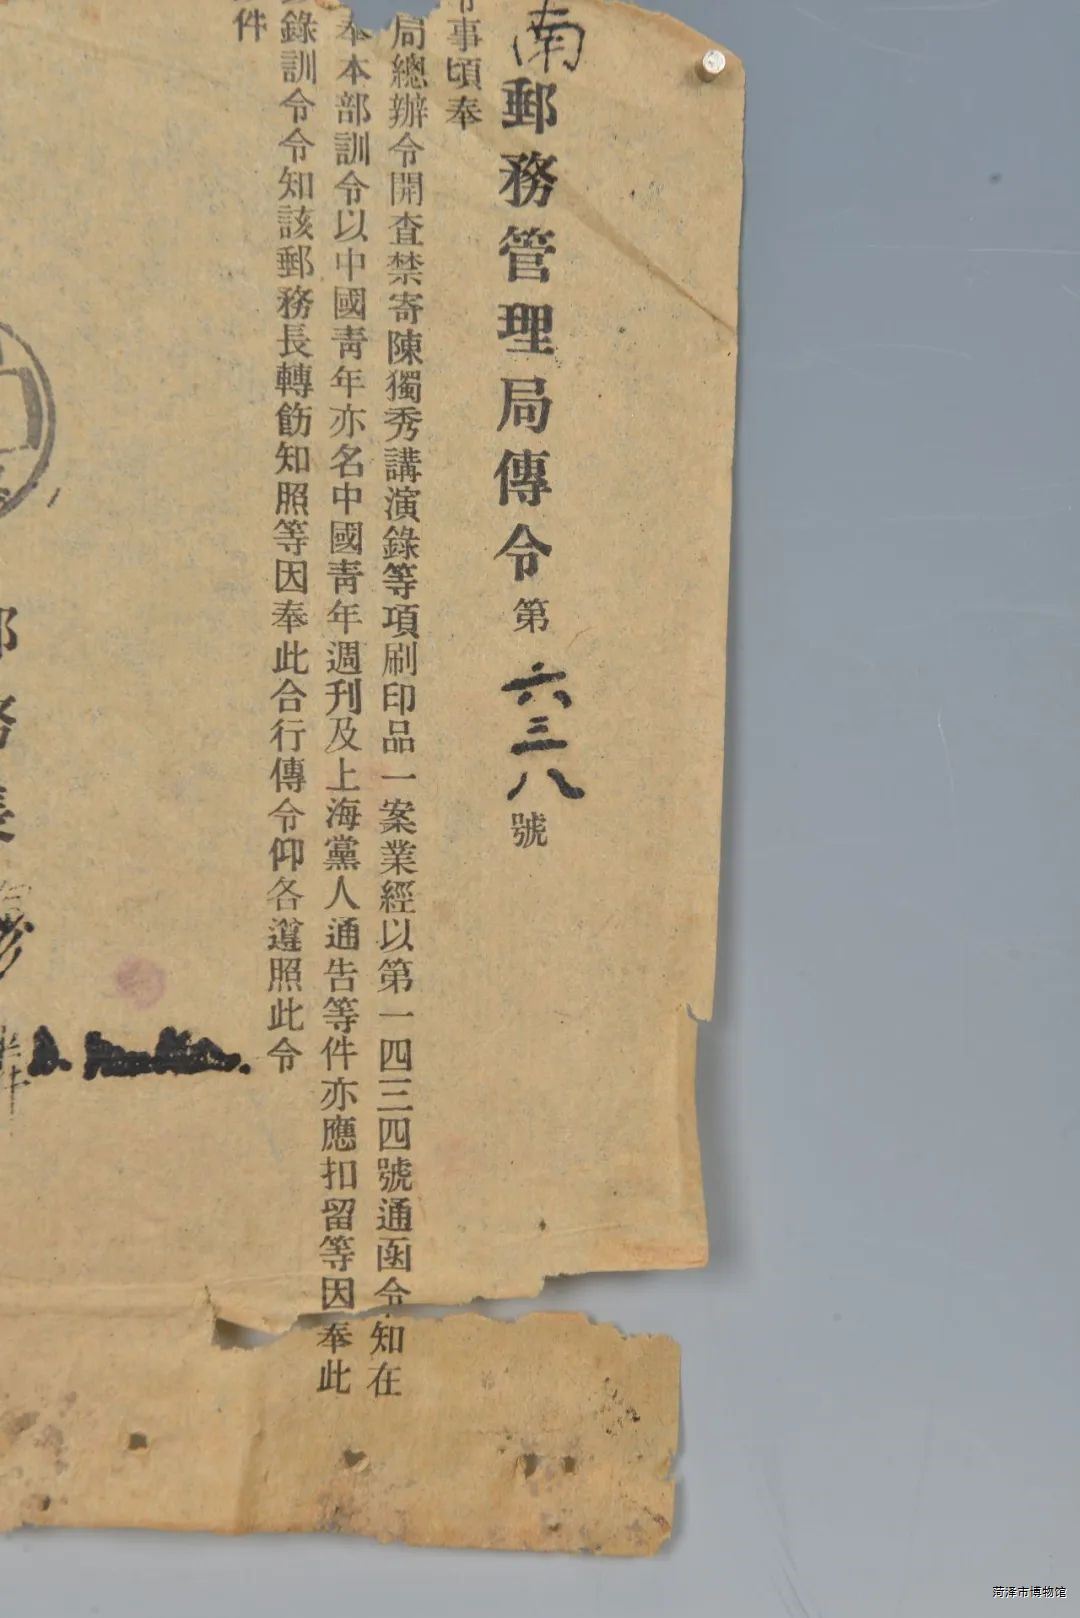 南郵務管理局傳令第六三八號
事頃奉
局總辦令開查禁寄陳獨秀講演錄等項刷印品一案業經以第一四三四號通函令知在
奉本部訓令以中國青年亦名中國青年週刊及上海黨人通告等件亦應扣留等因奉此
錄訓令令知該郵務長轉飭知照等因奉此合行傳令仰各遵照此令
件
郵務長
菏泽市博物馆